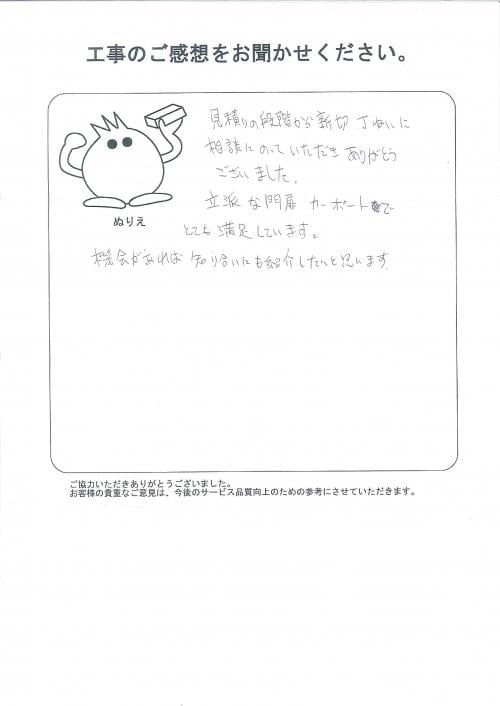 工事のご感想をお聞かせください。
見積りの段階から新切 丁ねいに
相談にのっていただき ありがとう
ございました。
立派な門扉 カーポートで
とても満足しています。
機会があれば 知り合いにも紹介したいと思います
ぬりえ
ご協力いただきありがとうございました。
お客様の貴重なご意見は、今後のサービス品質向上のための参考にさせていただきます。